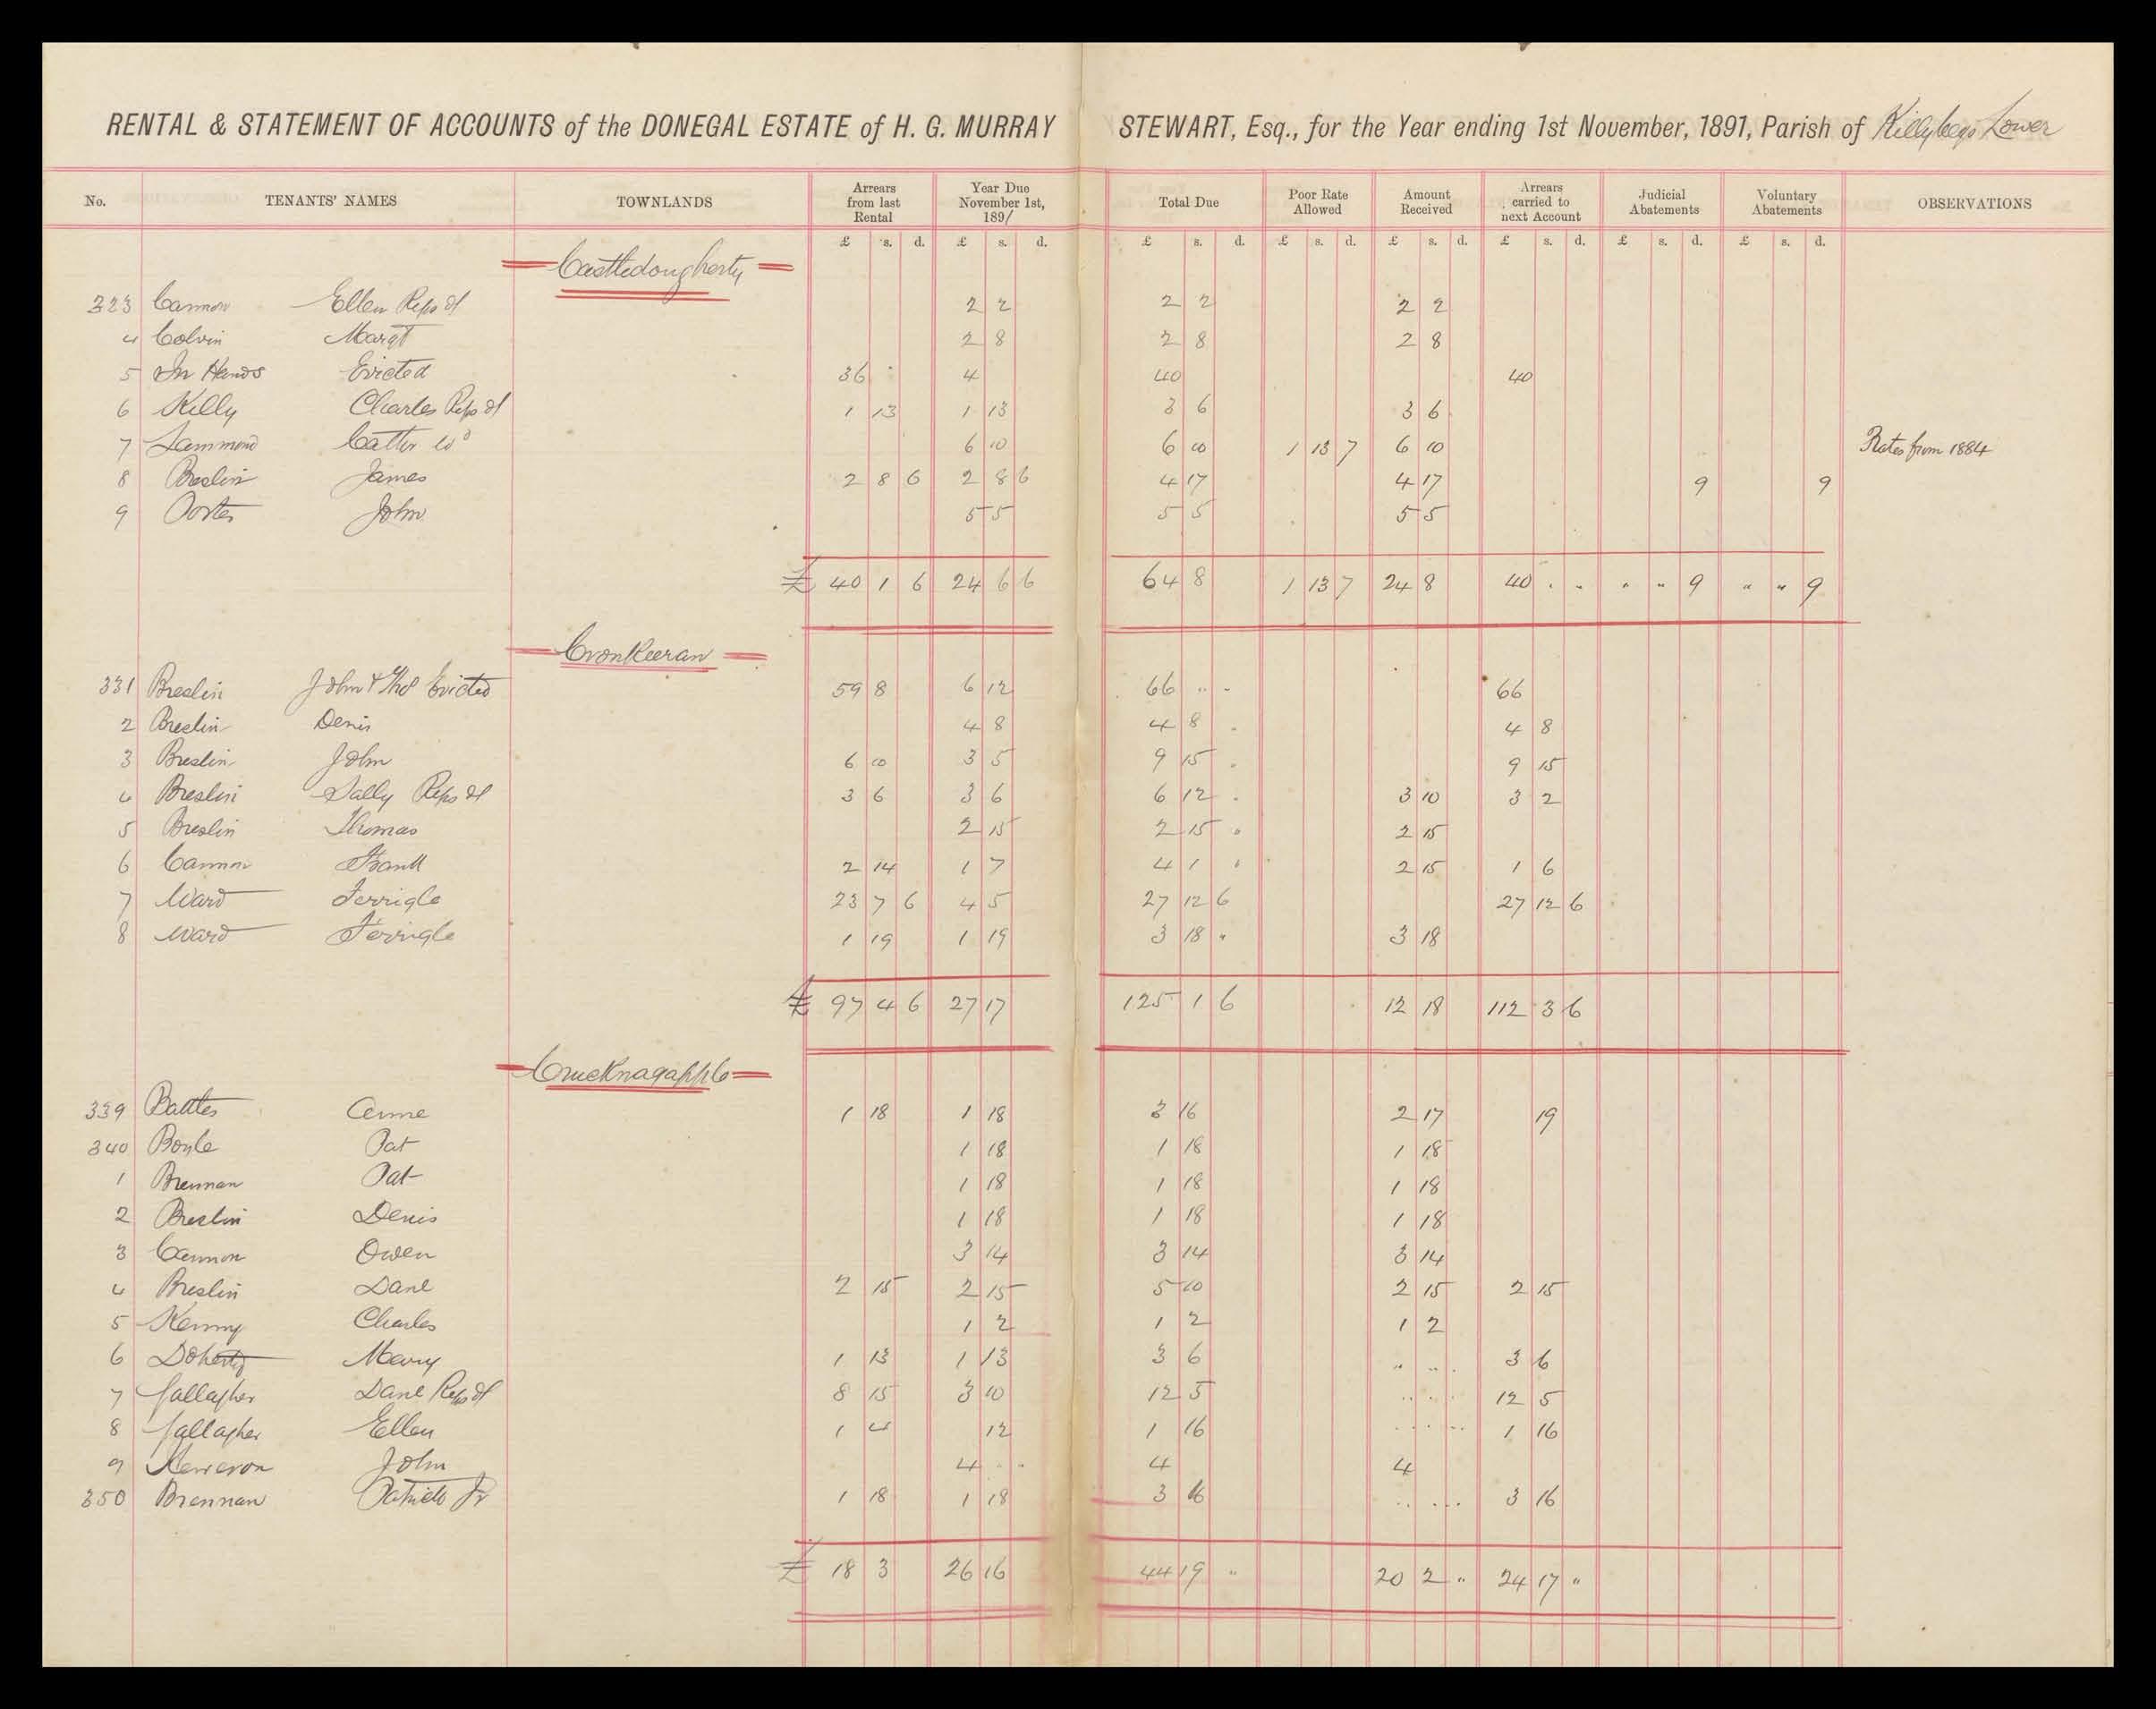 RENTAL & STATEMENT OF ACCOUNTS of the DONEGAL ESTATE of H. G. MURRAY STEWART, Esq., for the Year ending 1st November, 1891, Parish of Killybegs Lower
No. TENANTS' NAMES TOWNLANDS Arrears from last Rental Year Due November 1st, 1891 Total Due Poor Rate Allowed Amount Received Arrears carried to next Account Judicial Abatements Voluntary Abatements OBSERVATIONS
£ s. d. £ s. d. £ s. d. £ s. d. £ s. d. £ s. d. £ s. d. £ s. d.
Castledougherty
323 Cannon Ellen Reps of 2 2 2 2 2 2
4 Colvin Margt 2 8 2 8 2 8
5 In Hands Evicted 36 4 40 40
6 Killy Charles Reps of 1 13 1 13 3 6 3 6
7 Lammond 6 10 6 10 1 13 7 6 10 Rates from 1884
8 Breslin James 2 8 6 2 8 6 4 17 4 17 9 9
9 Porter John 5 5 5 5 5 5
£ 40 1 6 24 6 6 64 8 1 13 7 24 8 40 . . " " 9 " " 9
Cronkeeran
331 Breslin John & Thos Evicted 59 8 6 12 66 " " 66
2 Breslin Denis 4 8 4 8 . 4 8
3 Breslin John 6 10 3 5 9 15 . 9 15
4 Breslin Sally Reps of 3 6 3 6 6 12 . 3 10 3 2
5 Breslin Thomas 2 15 2 15 " 2 15
6 Cannon Frank 2 14 1 7 4 1 " 2 15 1 6
7 Ward Ferrigle 23 7 6 4 5 27 12 6 27 12 6
8 Ward Ferrigle 1 19 1 19 3 18 " 3 18
£ 97 4 6 27 17 125 1 6 12 18 112 3 6
Crucknagapple
339 Battles Anne 1 18 1 18 3 16 2 17 19
340 Boyle Pat 1 18 1 18 1 18
1 Brennan Pat 1 18 1 18 1 18
2 Breslin Denis 1 18 1 18 1 18
3 Cannon Owen 3 14 3 14 3 14
4 Breslin Danl 2 15 2 15 5 10 2 15 2 15
5 Kenny Charles 1 2 1 2 1 2
6 Doherty Mary 1 13 1 13 3 6 " " . 3 6
7 Gallagher Danl Reps of 8 15 3 10 12 5 " " . 12 5
8 Gallagher Ellen 1 4 12 1 16 " " " 1 16
9 John 4 . . 4 4
350 Brennan Patrick Jr 1 18 1 18 3 16 " " " 3 16
£ 18 3 26 16 44 19 " 20 2 " 24 17 "